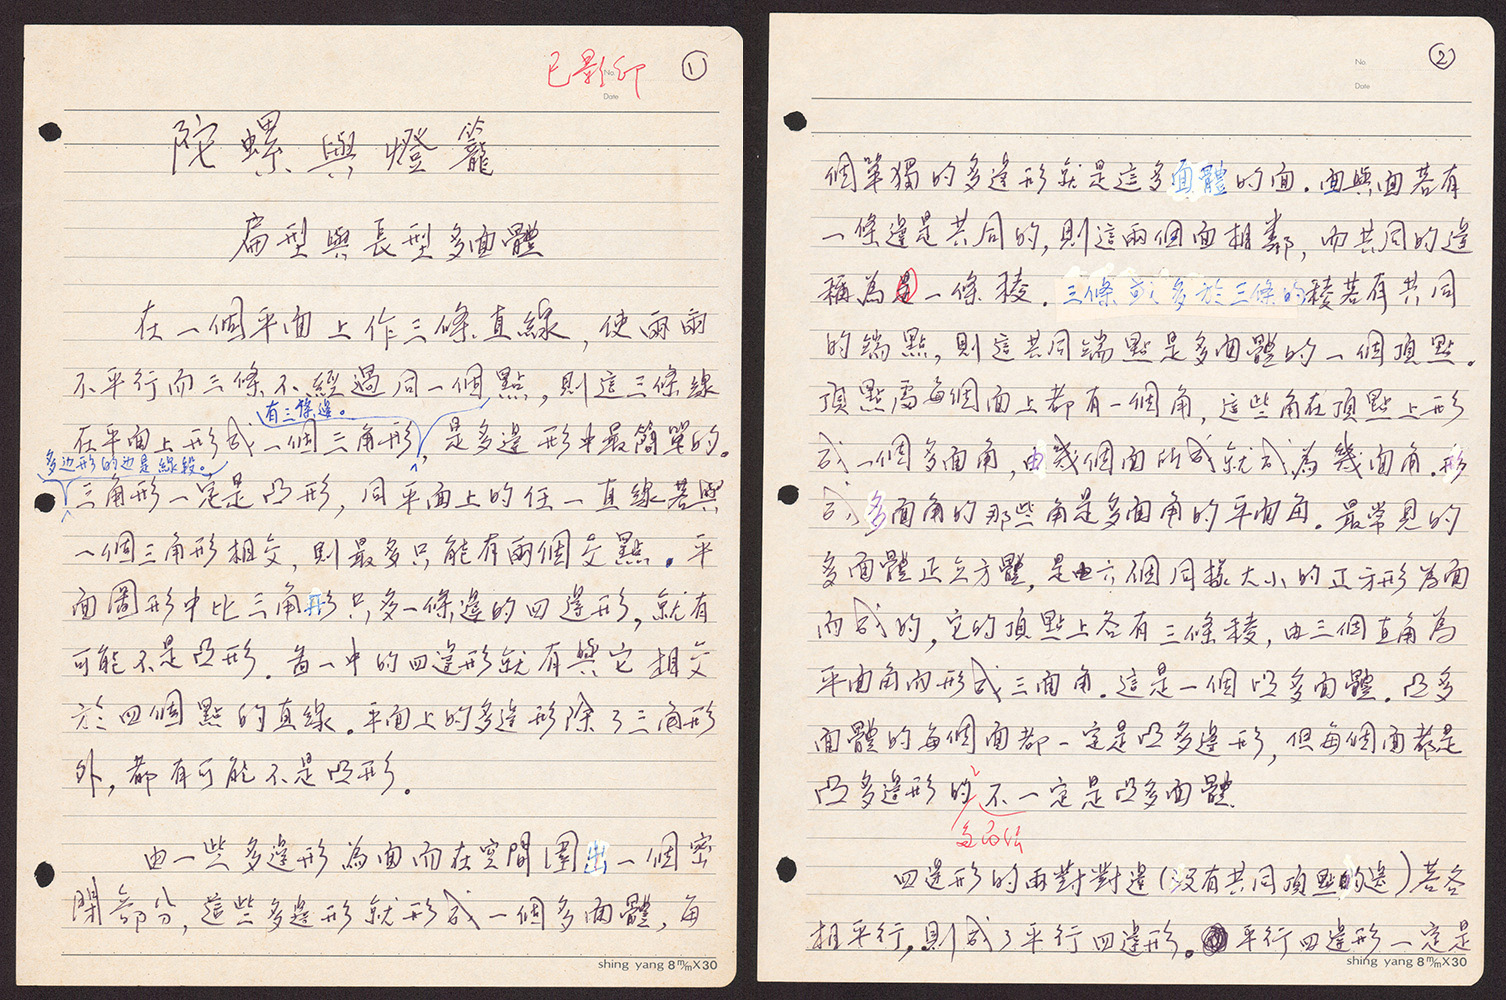 已影印 ①
No.
Date
陀螺與燈籠
扁型與長型多面體
在一個平面上作三條直線，使兩兩
不平行而三條不經過同一個點，則這三條線
有三條邊。
在平面上形成一個三角形，是多邊形中最簡單的。
多边形的边是線段。
三角形一定是凸形，同平面上的任一直線若與
一個三角形相交，則最多只能有兩個交點．平
面圖形中比三角形只多一條邊的四邊形，就有
可能不是凸形．圖一中的四邊形就有與它相交
於四個點的直線．平面上的多邊形除了三角形
外，都有可能不是凸形．
由一些多邊形為面而在空間圍出一個密
閉部分，這些多邊形就形成一個多面體，每
shing yang 8m/m×30
②
No.
Date
個單獨的多邊形就是這多面體的面．面與面若有
一條邊是共同的，則這兩個面相鄰，而共同的邊
稱為一條稜．三條或多於三條的稜若有共同
的端點，則這共同端點是多面體的一個頂點．
頂點處每個面上都有一個角，這些角在頂點上形
成一個多面角，由幾個面所成就成為幾面角．形
成多面角的那些角是多面角的平面角．最常見的
多面體正立方體，是由六個同樣大小的正方形為面
而成的，它的頂點上各有三條稜，由三個直角為
平面角而形成三面角．這是一個凸多面體．凸多
面體的每個面都一定是凸多邊形，但每個面都是
凸多邊形的不一定是凸多面體
多面体
四邊形的兩對對邊（沒有共同頂點的邊）若各
相平行，則成了平行四邊形．平行四邊形一定是
shing yang 8m/m×30